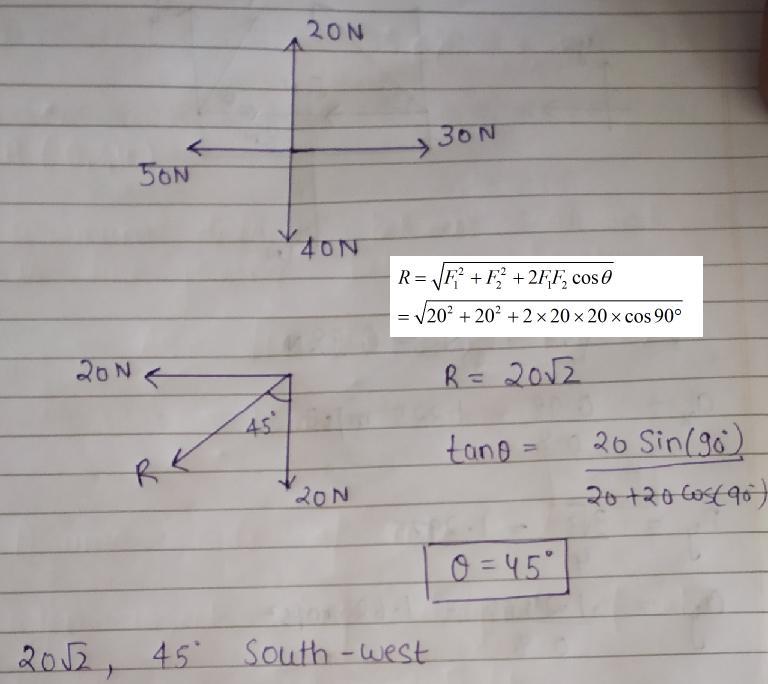 20N
30N
50N
40N
R = √F₁² + F₂² + 2F₁F₂ cosθ
= √20² + 20² + 2 × 20 × 20 × cos 90°
20N
R = 20√2
45°
tanθ = 20 Sin(90°)
20+20 Cos(90°)
R
20N
θ = 45°
20√2, 45° South-west